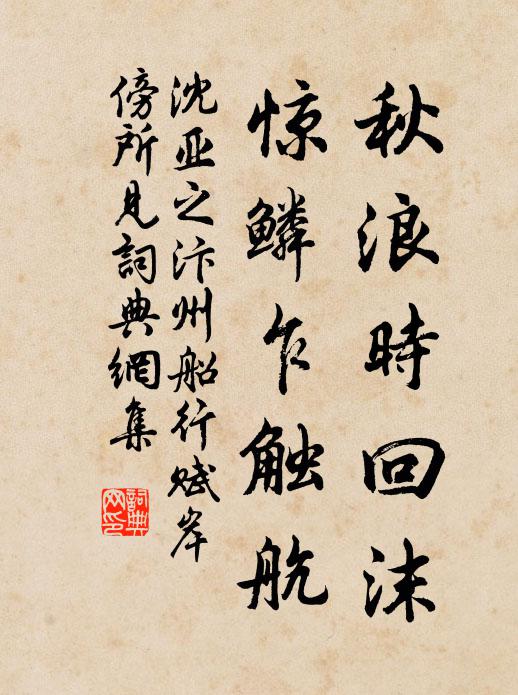 秋浪時回沫
惊鱗乍触航
沈亚之汴州船行赋岸
傍所見詞典網集
詞典网印